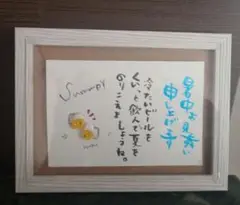 暑中お見舞い
申し上げます
冷たいビールも
くいっと飲んで夏を
のりこえましょうね。
Summpy